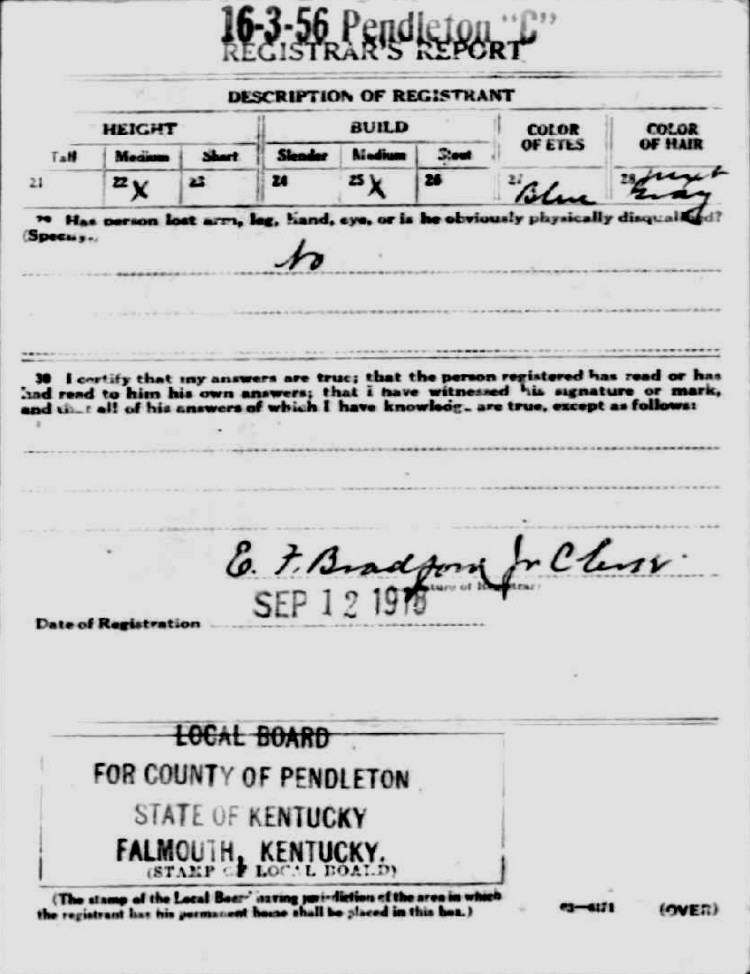 16-3-56 Pendleton "C"
REGISTRAR'S REPORT
DESCRIPTION OF REGISTRANT
HEIGHT BUILD COLOR OF EYES COLOR OF HAIR
Tall Medium Short Slender Medium Stout
21 22 X 23 24 25 X 26 27 Blue 28 Gray
29 Has person lost arm, leg, hand, eye, or is he obviously physically disqualified?
(Specify.)
No
30 I certify that my answers are true; that the person registered has read or has
had read to him his own answers; that I have witnessed his signature or mark,
and that all of his answers of which I have knowledge are true, except as follows:
E. F. Jr Clerk
(Signature of Registrar)
SEP 12 1918
Date of Registration
LOCAL BOARD
FOR COUNTY OF PENDLETON
STATE OF KENTUCKY
FALMOUTH, KENTUCKY.
(STAMP OF LOCAL BOARD)
(The stamp of the Local Board having jurisdiction of the area in which
the registrant has his permanent home shall be placed in this box.)
03—6171 (OVER)